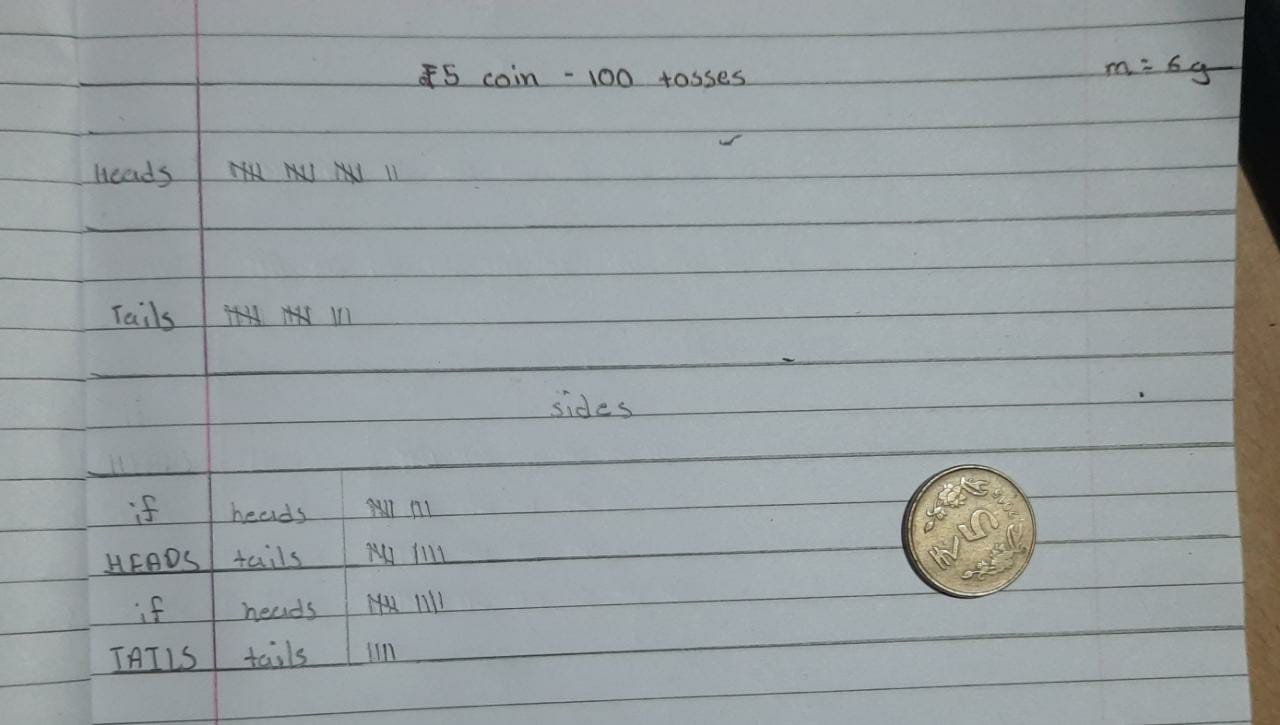 ₹5 coin - 100 tosses
m = 6g
Heads 𝍸 𝍸 𝍸 ||
Tails 𝍸 𝍸 |||
sides
if heads 𝍸 |||
HEADS tails 𝍸 ||||
if heads 𝍸 ||||
TAILS tails ||||
₹5